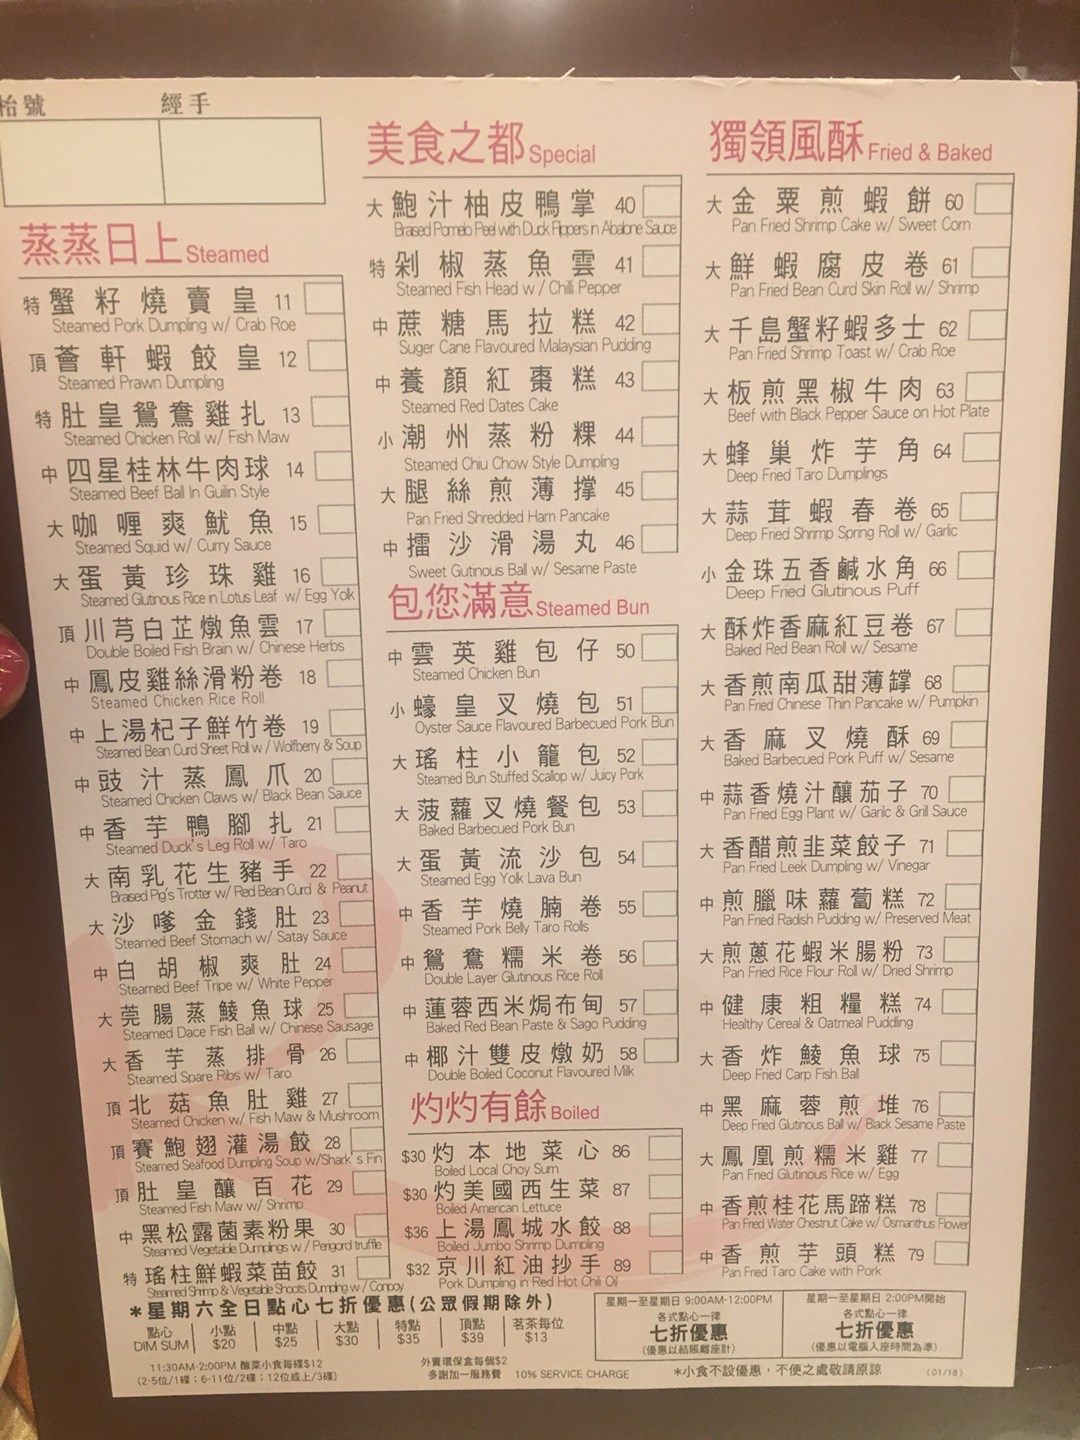 枱號 經手
蒸蒸日上 Steamed
特 蟹籽燒賣皇 11
Steamed Pork Dumpling w/ Crab Roe
頂 薈軒蝦餃皇 12
Steamed Prawn Dumpling
特 肚皇鴛鴦雞扎 13
Steamed Chicken Roll w/ Fish Maw
中 四星桂林牛肉球 14
Steamed Beef Ball In Guilin Style
大 咖喱爽魷魚 15
Steamed Squid w/ Curry Sauce
大 蛋黃珍珠雞 16
Steamed Glutinous Rice in Lotus Leaf w/ Egg Yolk
頂 川芎白芷燉魚雲 17
Double Boiled Fish Brain w/ Chinese Herbs
中 鳳皮雞絲滑粉卷 18
Steamed Chicken Rice Roll
中 上湯杞子鮮竹卷 19
Steamed Bean Curd Sheet Roll w / Wolfberry & Soup
中 豉汁蒸鳳爪 20
Steamed Chicken Claws w/ Black Bean Sauce
中 香芋鴨腳扎 21
Steamed Duck's Leg Roll w/ Taro
大 南乳花生豬手 22
Braised Pig's Trotter w/ Red Bean Curd & Peanut
大 沙嗲金錢肚 23
Steamed Beef Stomach w/ Satay Sauce
中 白胡椒爽肚 24
Steamed Beef Tripe w/ White Pepper
大 莞腸蒸鯪魚球 25
Steamed Dace Fish Ball w/ Chinese Sausage
大 香芋蒸排骨 26
Steamed Spare Ribs w/ Taro
頂 北菇魚肚雞 27
Steamed Chicken w/ Fish Maw & Mushroom
頂 賽鮑翅灌湯餃 28
Steamed Seafood Dumpling Soup w/Shark's Fin
頂 肚皇釀百花 29
Steamed Fish Maw w/ Shrimp
中 黑松露菌素粉果 30
Steamed Vegetable Dumplings w / Perigord truffle
特 瑤柱鮮蝦菜苗餃 31
Steamed Shrimp & Vegetable Shoots Dumpling w / Conpoy
美食之都 Special
大 鮑汁柚皮鴨掌 40
Braised Pomelo Peel with Duck Flippers in Abalone Sauce
特 剁椒蒸魚雲 41
Steamed Fish Head w / Chilli Pepper
中 蔗糖馬拉糕 42
Suger Cane Flavoured Malaysian Pudding
中 養顏紅棗糕 43
Steamed Red Dates Cake
小 潮州蒸粉粿 44
Steamed Chiu Chow Style Dumpling
大 腿絲煎薄撐 45
Pan Fried Shredded Ham Pancake
中 擂沙滑湯丸 46
Sweet Gutinous Ball w/ Sesame Paste
包您滿意 Steamed Bun
中 雲英雞包仔 50
Steamed Chicken Bun
小 蠔皇叉燒包 51
Oyster Sauce Flavoured Barbecued Pork Bun
大 瑤柱小籠包 52
Steamed Bun Stuffed Scallop w/ Juicy Pork
大 菠蘿叉燒餐包 53
Baked Barbecued Pork Bun
大 蛋黃流沙包 54
Steamed Egg Yolk Lava Bun
中 香芋燒腩卷 55
Steamed Pork Belly Taro Rolls
中 鴛鴦糯米卷 56
Double Layer Glutinous Rice Roll
中 蓮蓉西米焗布甸 57
Baked Red Bean Paste & Sago Pudding
中 椰汁雙皮燉奶 58
Double Boiled Coconut Flavoured Milk
灼灼有餘 Boiled
$30 灼本地菜心 86
Boiled Local Choy Sum
$30 灼美國西生菜 87
Boiled American Lettuce
$36 上湯鳳城水餃 88
Boiled Jumbo Shrimp Dumpling
$32 京川紅油抄手 89
Pork Dumpling in Red Hot Chili Oil
獨領風酥 Fried & Baked
大 金粟煎蝦餅 60
Pan Fried Shrimp Cake w/ Sweet Corn
大 鮮蝦腐皮卷 61
Pan Fried Bean Curd Skin Roll w/ Shrimp
大 千島蟹籽蝦多士 62
Pan Fried Shrimp Toast w/ Crab Roe
大 板煎黑椒牛肉 63
Beef with Black Pepper Sauce on Hot Plate
大 蜂巢炸芋角 64
Deep Fried Taro Dumplings
大 蒜茸蝦春卷 65
Deep Fried Shrimp Spring Roll w/ Garlic
小 金珠五香鹹水角 66
Deep Fried Glutinous Puff
大 酥炸香麻紅豆卷 67
Baked Red Bean Roll w/ Sesame
大 香煎南瓜甜薄罉 68
Pan Fried Chinese Thin Pancake w/ Pumpkin
大 香麻叉燒酥 69
Baked Barbecued Pork Puff w/ Sesame
中 蒜香燒汁釀茄子 70
Pan Fried Egg Plant w/ Garlic & Grill Sauce
大 香醋煎韭菜餃子 71
Pan Fried Leek Dumpling w/ Vinegar
中 煎臘味蘿蔔糕 72
Pan Fried Radish Pudding w/ Preserved Meat
大 煎蔥花蝦米腸粉 73
Pan Fried Rice Flour Roll w/ Dried Shrimp
中 健康粗糧糕 74
Healthy Cereal & Oatmeal Pudding
大 香炸鯪魚球 75
Deep Fried Carp Fish Ball
中 黑麻蓉煎堆 76
Deep Fried Glutnous Ball w/ Black Sesame Paste
大 鳳凰煎糯米雞 77
Pan Fried Glutinous Rice w/ Egg
中 香煎桂花馬蹄糕 78
Pan Fried Water Chestnut Cake w/ Osmanthus Flower
中 香煎芋頭糕 79
Pan Fried Taro Cake with Pork
*星期六全日點心七折優惠(公眾假期除外)
點心 小點 中點 大點 特點 頂點 茗茶每位
DIM SUM $20 $25 $30 $35 $39 $13
11:30AM-2:00PM 酸菜小食每碟$12
(2-5位/1碟；6-11位/2碟；12位或上/3碟)
外賣環保盒每個$2
多謝加一服務費 10% SERVICE CHARGE
星期一至星期日 9:00AM-12:00PM
各式點心一律
七折優惠
(優惠以結賬離座計)
星期一至星期日 2:00PM開始
各式點心一律
七折優惠
(優惠以電腦入座時間為準)
*小食不設優惠，不便之處敬請原諒
(01/18)